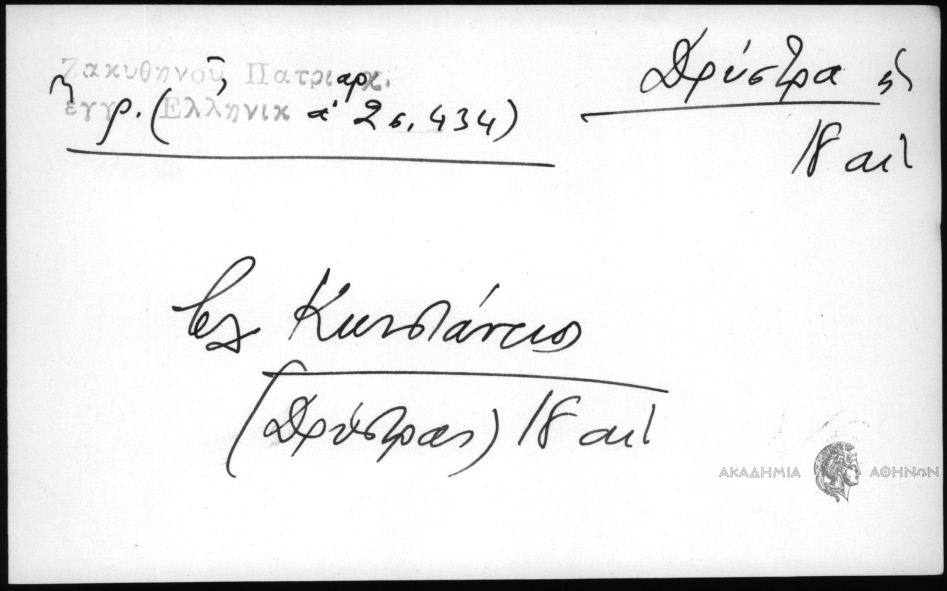 Ζακυθηνοῦ Πατριαρχ.
ἔγγρ. (Ἑλληνικ ἀ 2 σ. 434)
Δρύστρα
18 αἰ
Κωνστάντιος
(Δρύστρας) 18 αἰ
ΑΚΑΔΗΜΙΑ ΑΘΗΝΩΝ